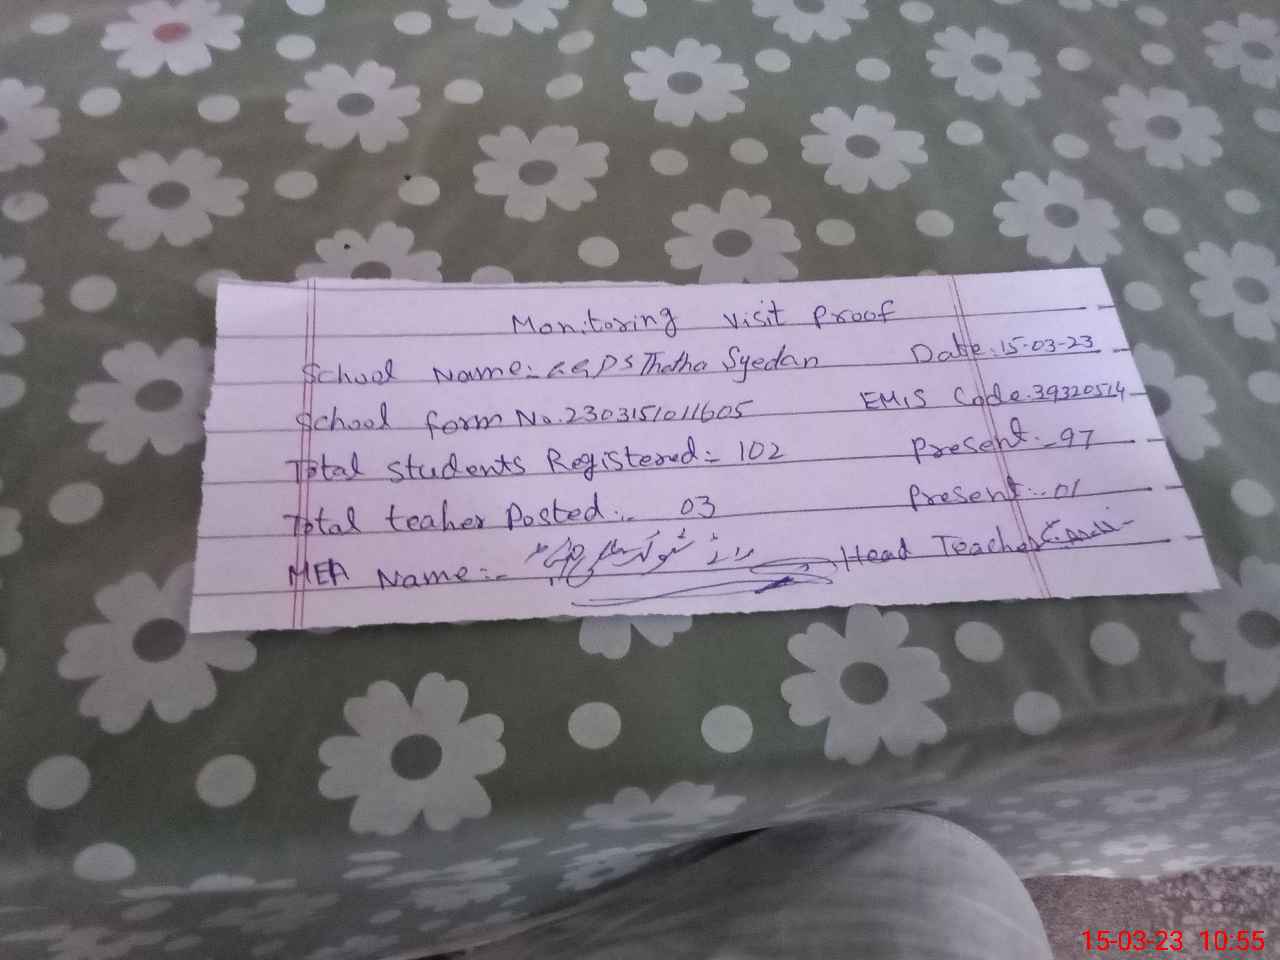 Monitoring visit proof
School Name:- GGPS Thatha Syedan Date:15-03-23
School form No.2303151011605 EMIS Code.39320514
Total students Registered:- 102 present:-97
Total teaher Posted:- 03 present:-01
MEA Name:- Head Teacher
15-03-23 10:55